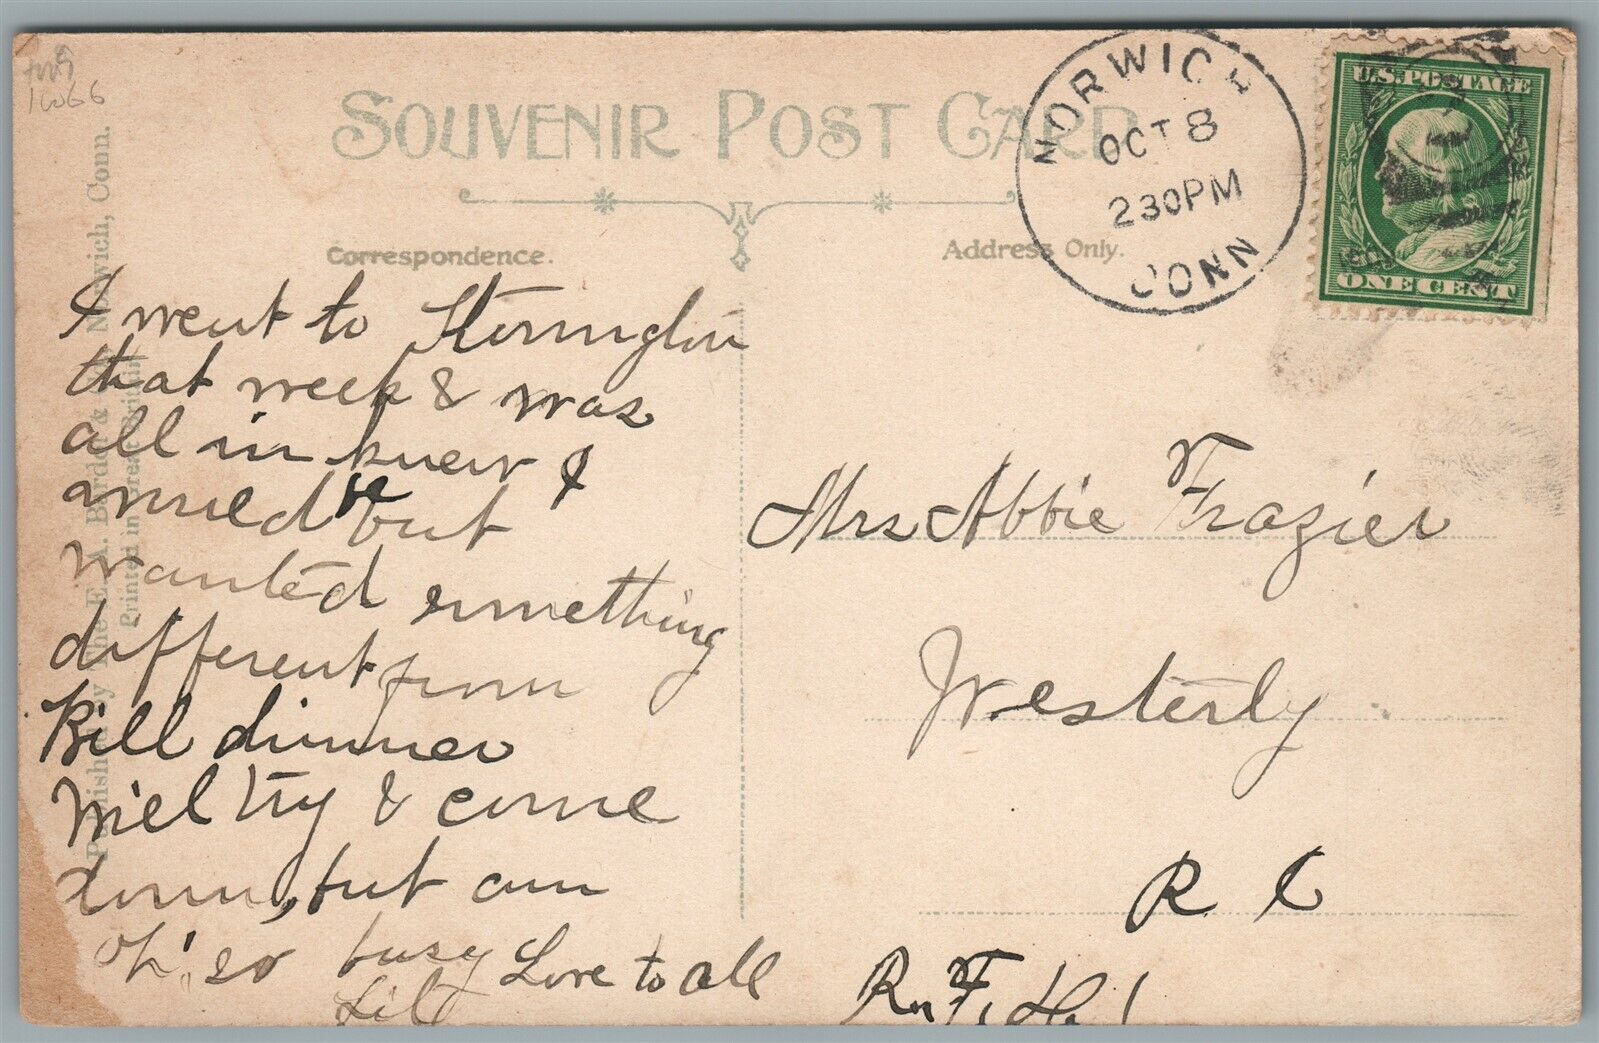 SOUVENIR POST CARD
NORWICH
OCT 8
230PM
CONN
U.S. POSTAGE
ONE CENT
Correspondence.
Address Only.
I went to Stonington
that week & was
all in knew I
but
wanted something
different from
Bill dinner
Will try & come
down, but am
Oh! so busy Love to all
Lil
Mrs Abbie Frazier
Westerly
R I
R. F. D. 1
Norwich, Conn.
Printed in Great Britain